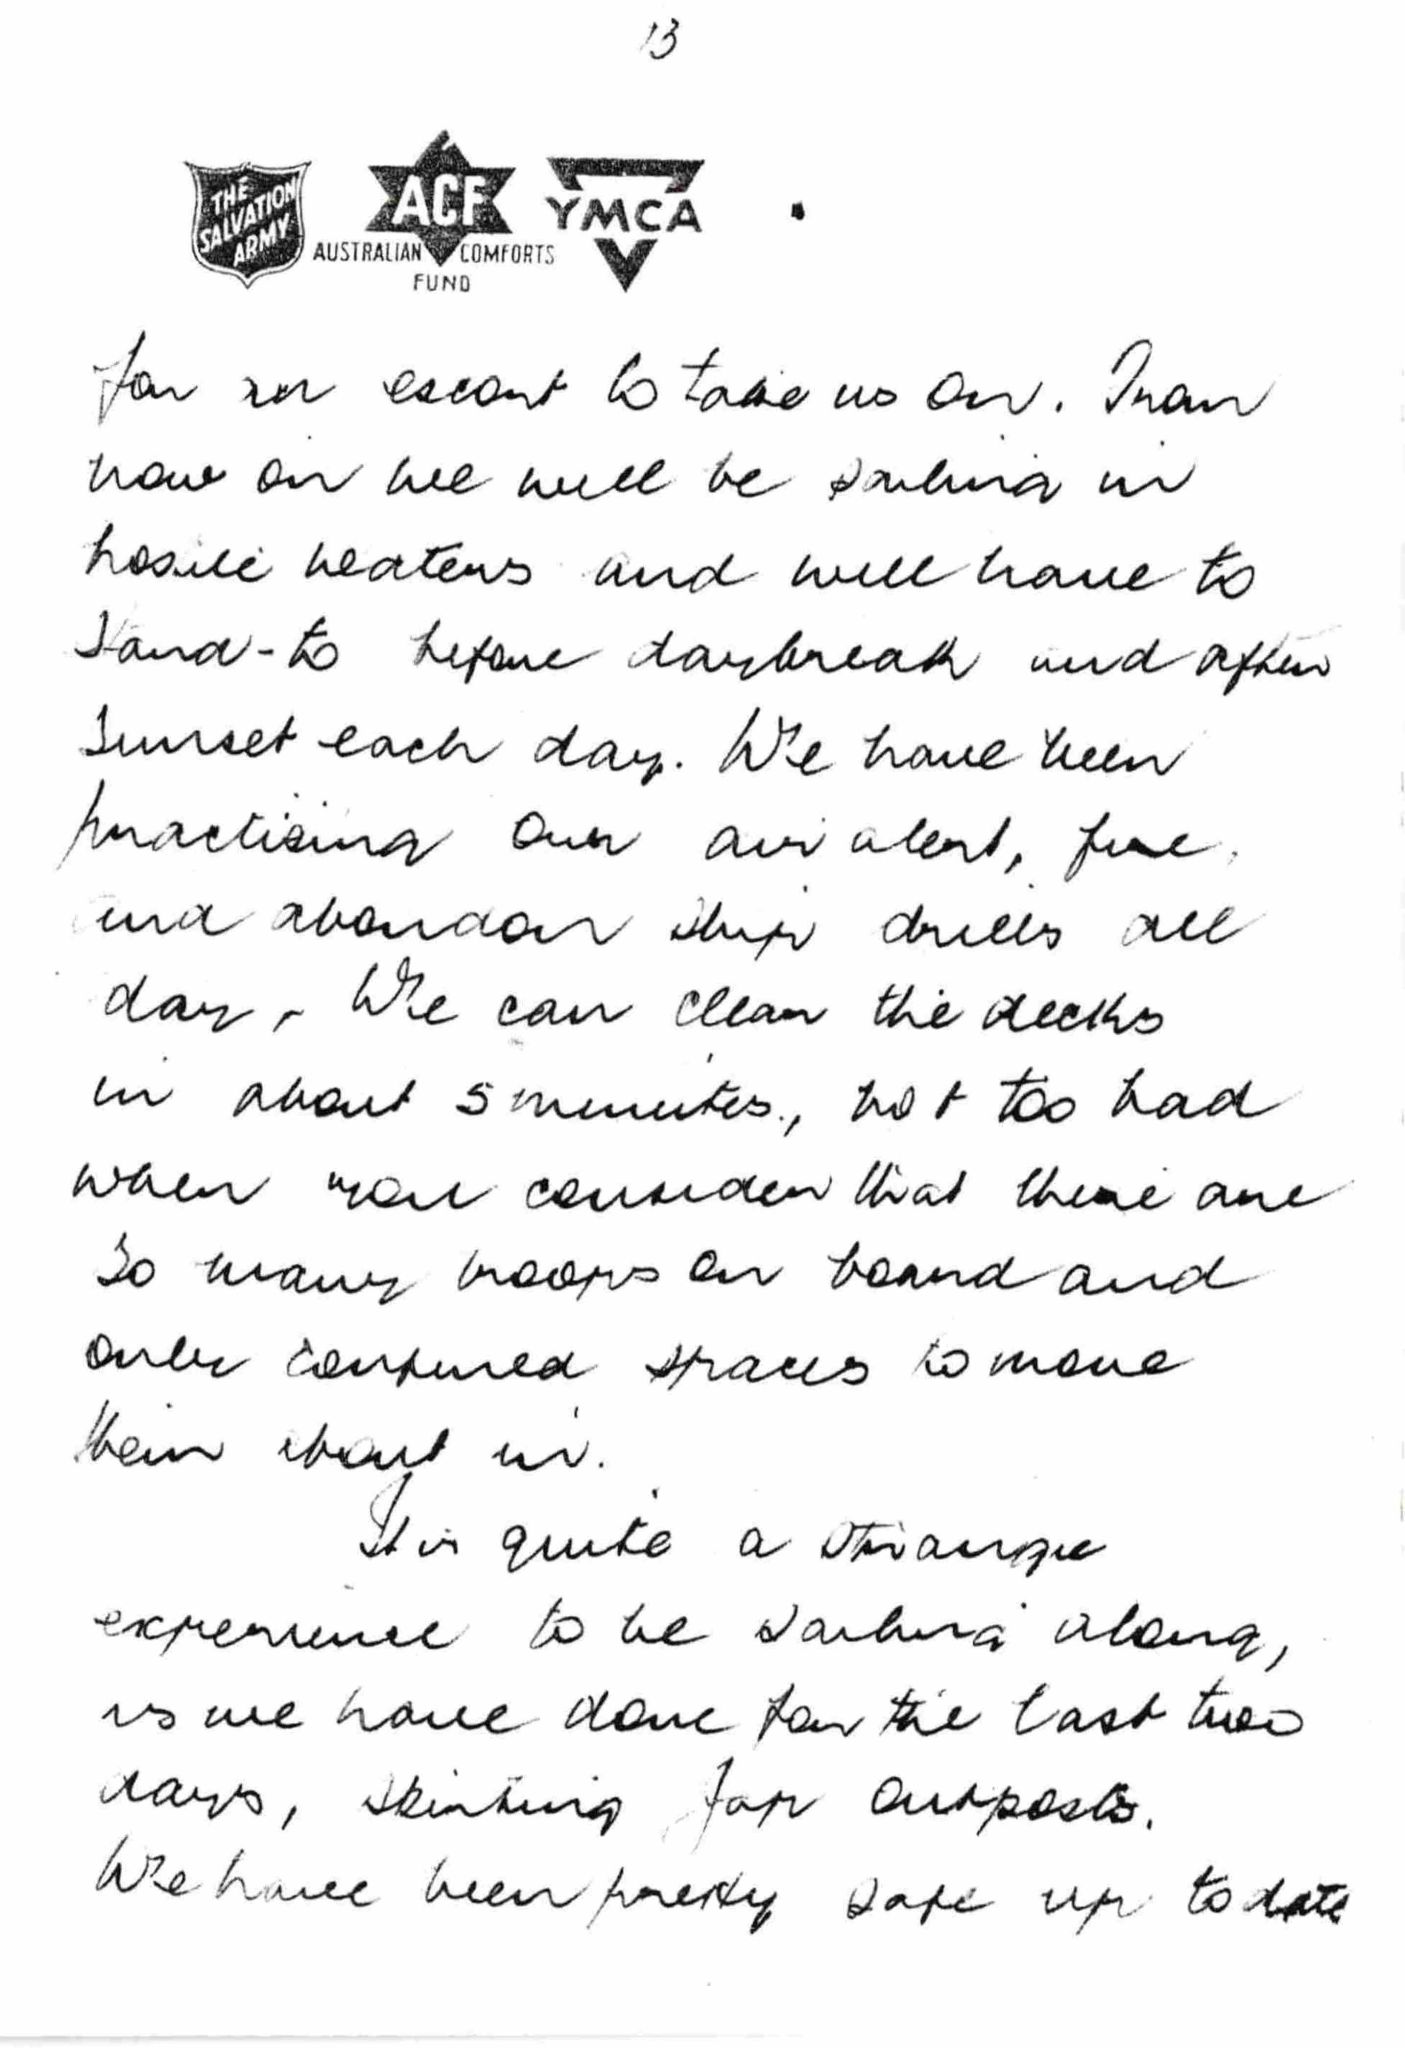 13
THE SALVATION ARMY
ACF
AUSTRALIAN COMFORTS FUND
YMCA
for an escort to take us on. From
now on we will be sailing in
hosile waters and will have to
stand-to before daybreak and after
sunset each day. We have been
practising our air alert, fire,
and abandon ship drills all
day. We can clear the decks
in about 5 minutes., not too bad
when you consider that there are
so many troops on board and
only confined spaces to move
them about in.
It is quite a strange
experience to be sailing along,
as we have done for the last two
days, skirting Jap outposts.
We have been pretty safe up to date